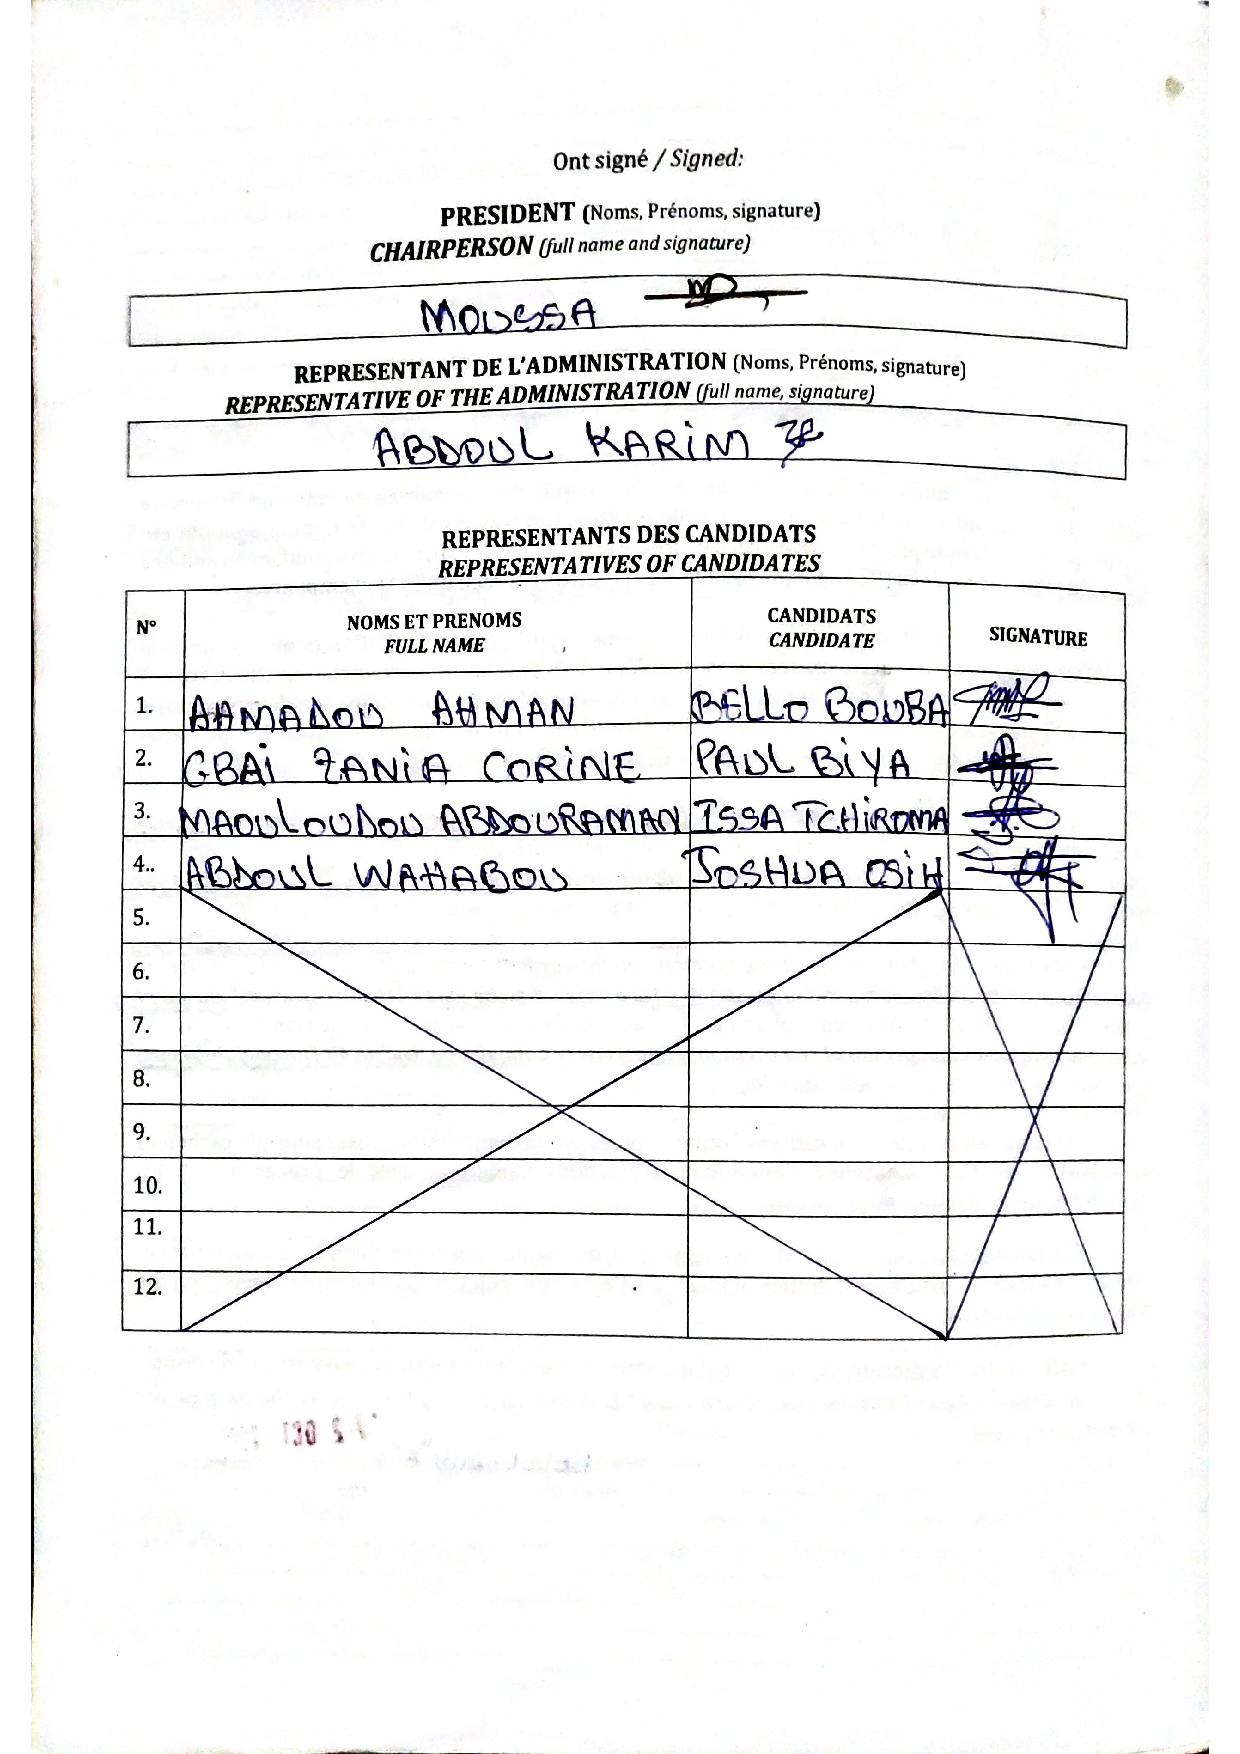 Ont signé / Signed:
PRESIDENT (Noms, Prénoms, signature)
CHAIRPERSON (full name and signature)
MOUSSA
REPRESENTANT DE L'ADMINISTRATION (Noms, Prénoms, signature)
REPRESENTATIVE OF THE ADMINISTRATION (full name, signature)
ABDOUL KARIM
REPRESENTANTS DES CANDIDATS
REPRESENTATIVES OF CANDIDATES
N° NOMS ET PRENOMS CANDIDATS SIGNATURE
FULL NAME CANDIDATE
1. AAMADOU AHMAN BELLO BOUBA
2. GBAI ZANIA CORINE PAUL BIYA
3. MAOULOUDOU ABDOURAMAN ISSA TCHIROMA
4.. ABDOUL WAHABOU JOSHUA OSIH
5.
6.
7.
8.
9.
10.
11.
12.